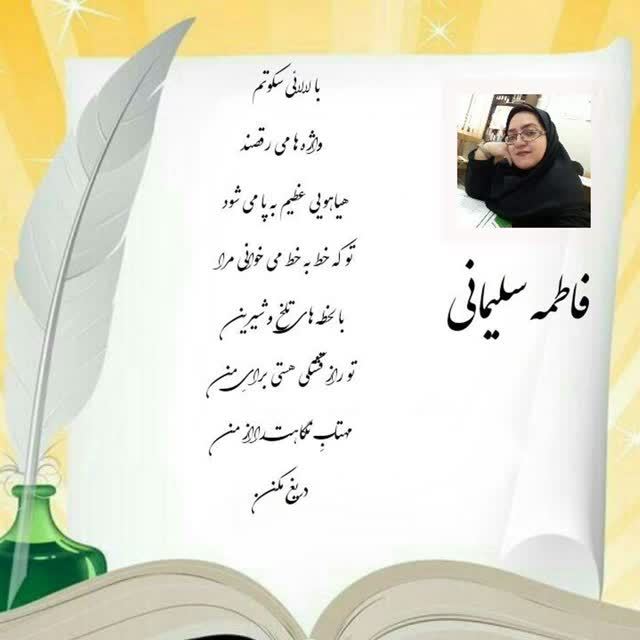 با لالائی سکوتم
واژه ها می رقصند
هیاهویی عظیم به پا می شود
تو که خط به خط می خوانی مرا
با لحظه های تلخ و شیرین
تو راز قشنگی هستی برایِ من
مهتابِ نگاهت را از من
دریغ مکن.
فاطمه سلیمانی